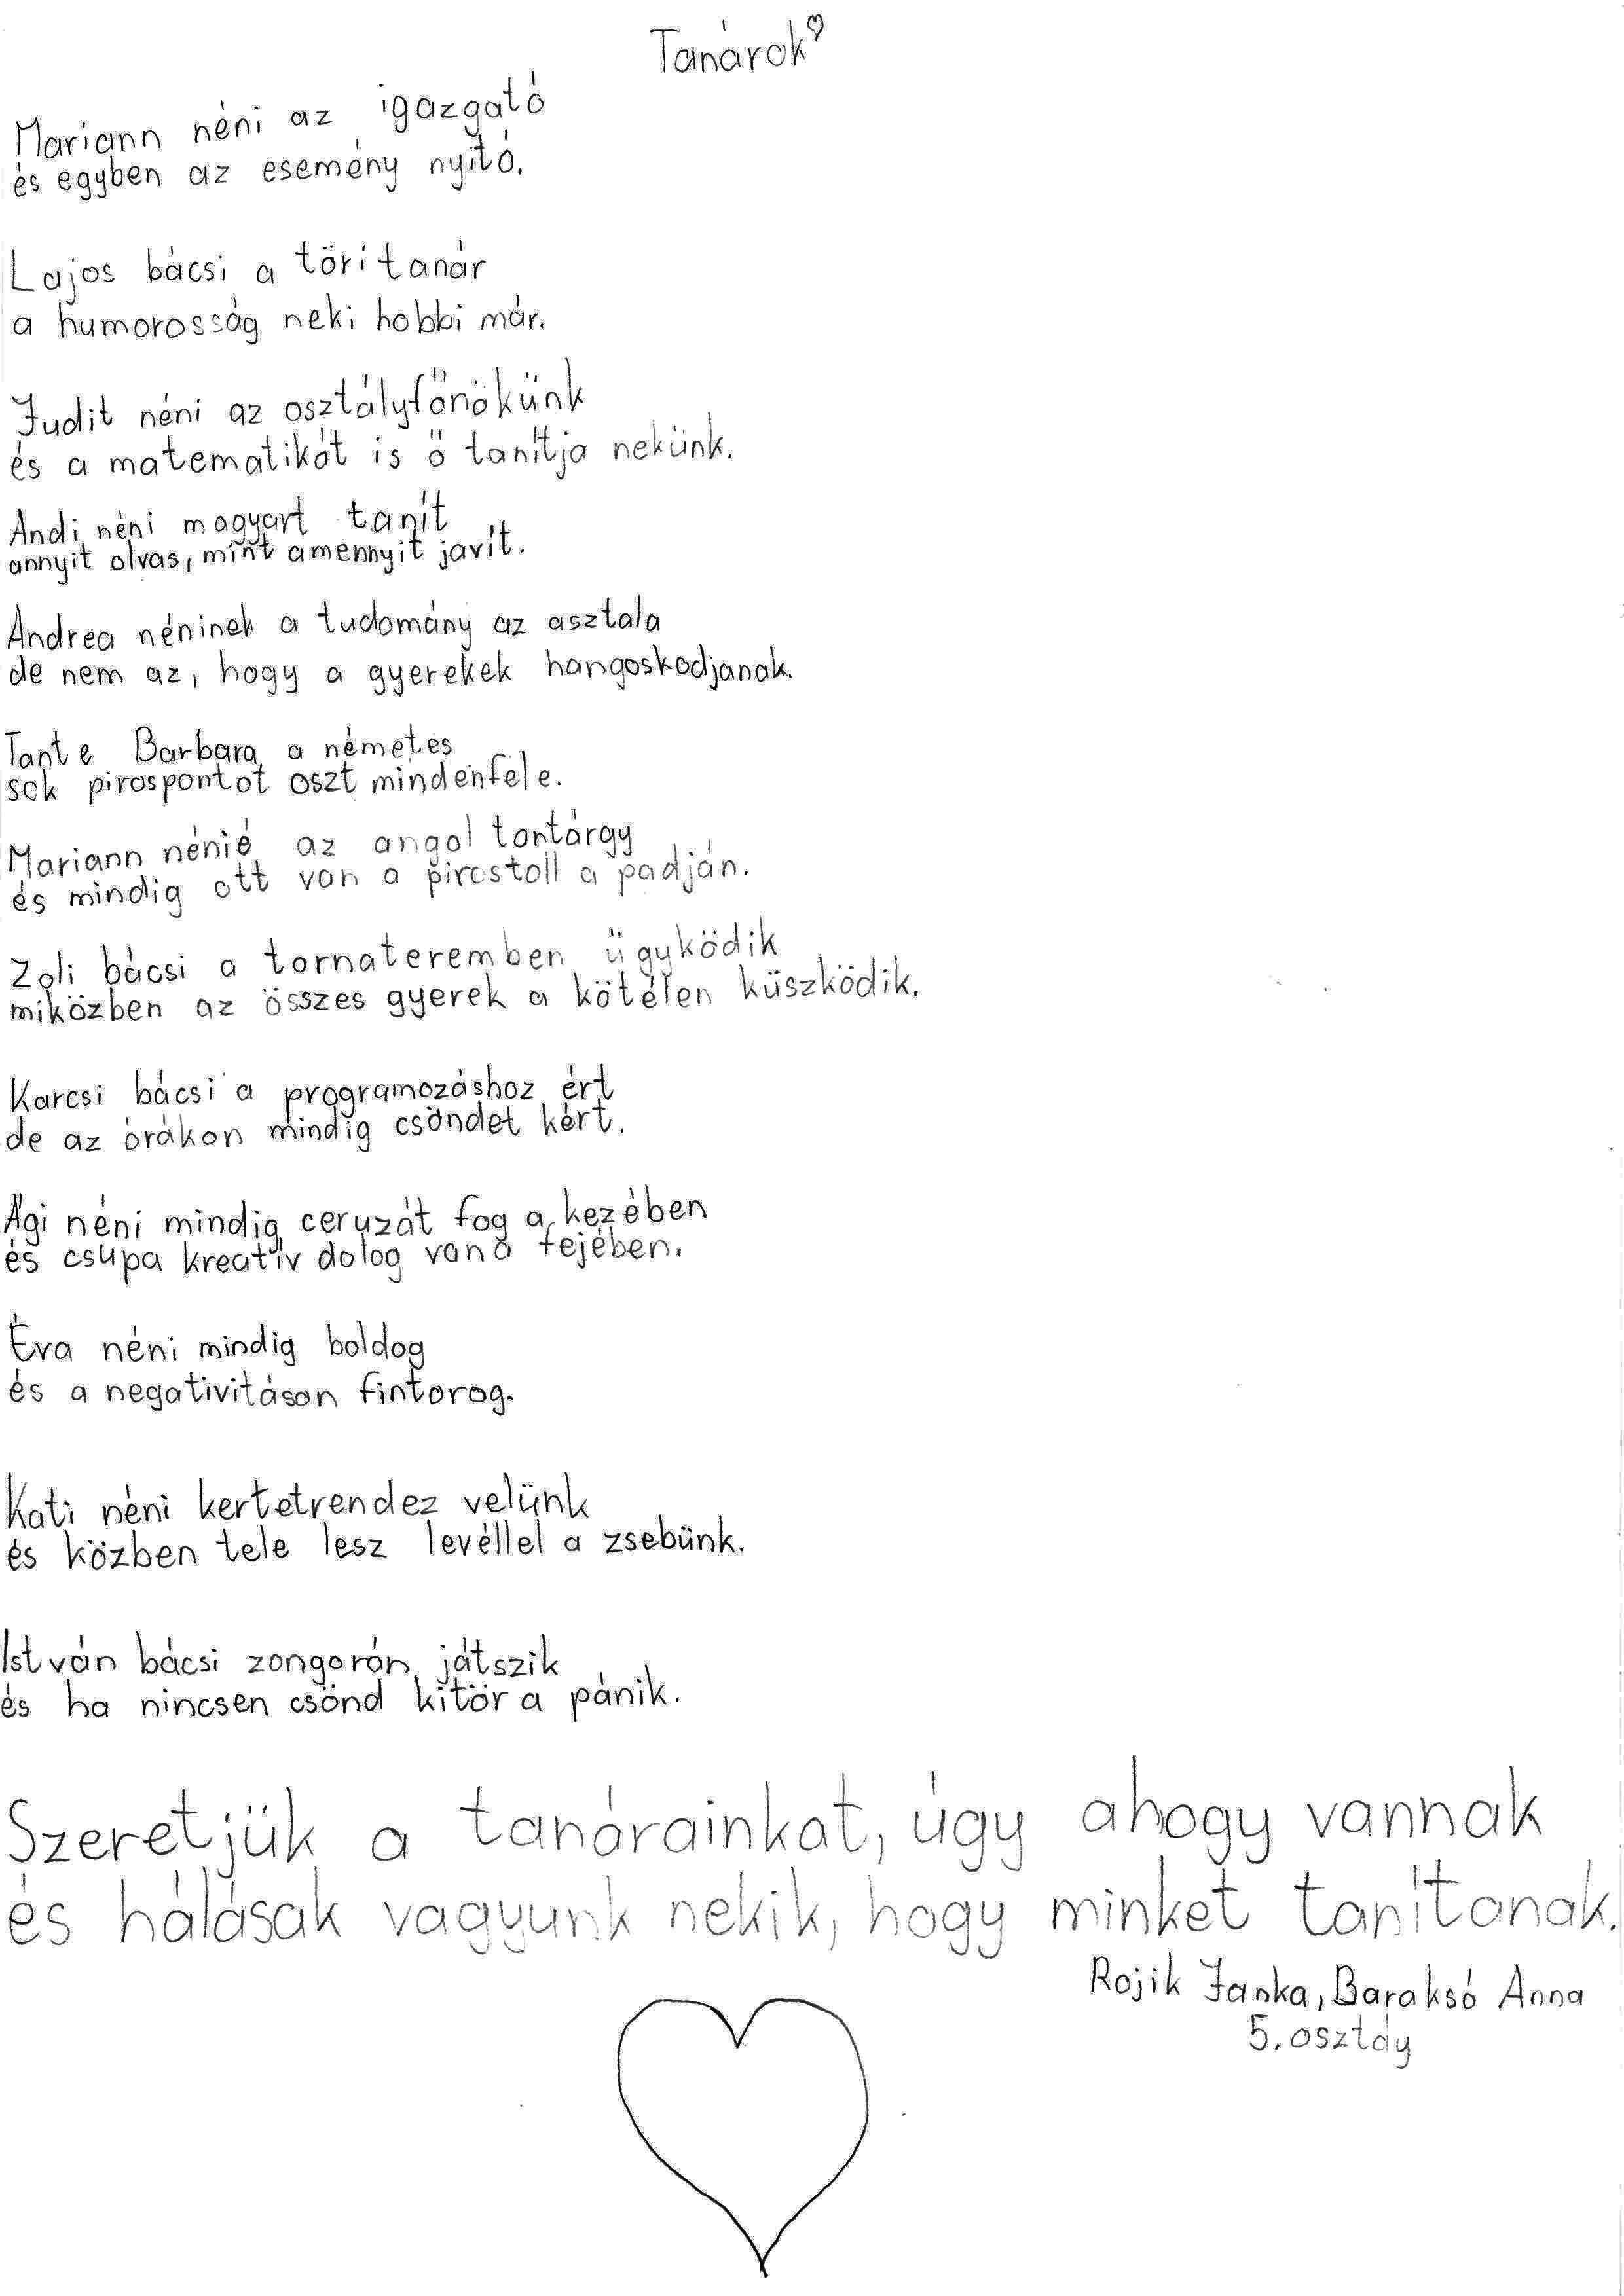 Tanárok♡
Mariann néni az igazgató
és egyben az esemény nyitó.
Lajos bácsi a töri tanár
a humorosság neki hobbi már.
Judit néni az osztályfőnökünk
és a matematikát is ő tanítja nekünk.
Andi néni magyart tanít
annyit olvas, mint amennyit javít.
Andrea néninek a tudomány az asztala
de nem az, hogy a gyerekek hangoskodjanak.
Tante Barbara a németes
sok pirospontot oszt mindenfele.
Mariann nénié az angol tantárgy
és mindig ott van a pirostoll a padján.
Zoli bácsi a tornateremben ügyködik
miközben az összes gyerek a kötélen küszködik.
Karcsi bácsi a programozáshoz ért
de az órákon mindig csöndet kért.
Ági néni mindig ceruzát fog a kezében
és csupa kreatív dolog van a fejében.
Éva néni mindig boldog
és a negativitáson fintorog.
Kati néni kertetrendez velünk
és közben tele lesz levéllel a zsebünk.
István bácsi zongorán játszik
és ha nincsen csönd kitör a pánik.
Szeretjük a tanárainkat, úgy ahogy vannak
és hálásak vagyunk nekik, hogy minket tanítanak.
Rojik Janka, Baraksó Anna
5. osztáy